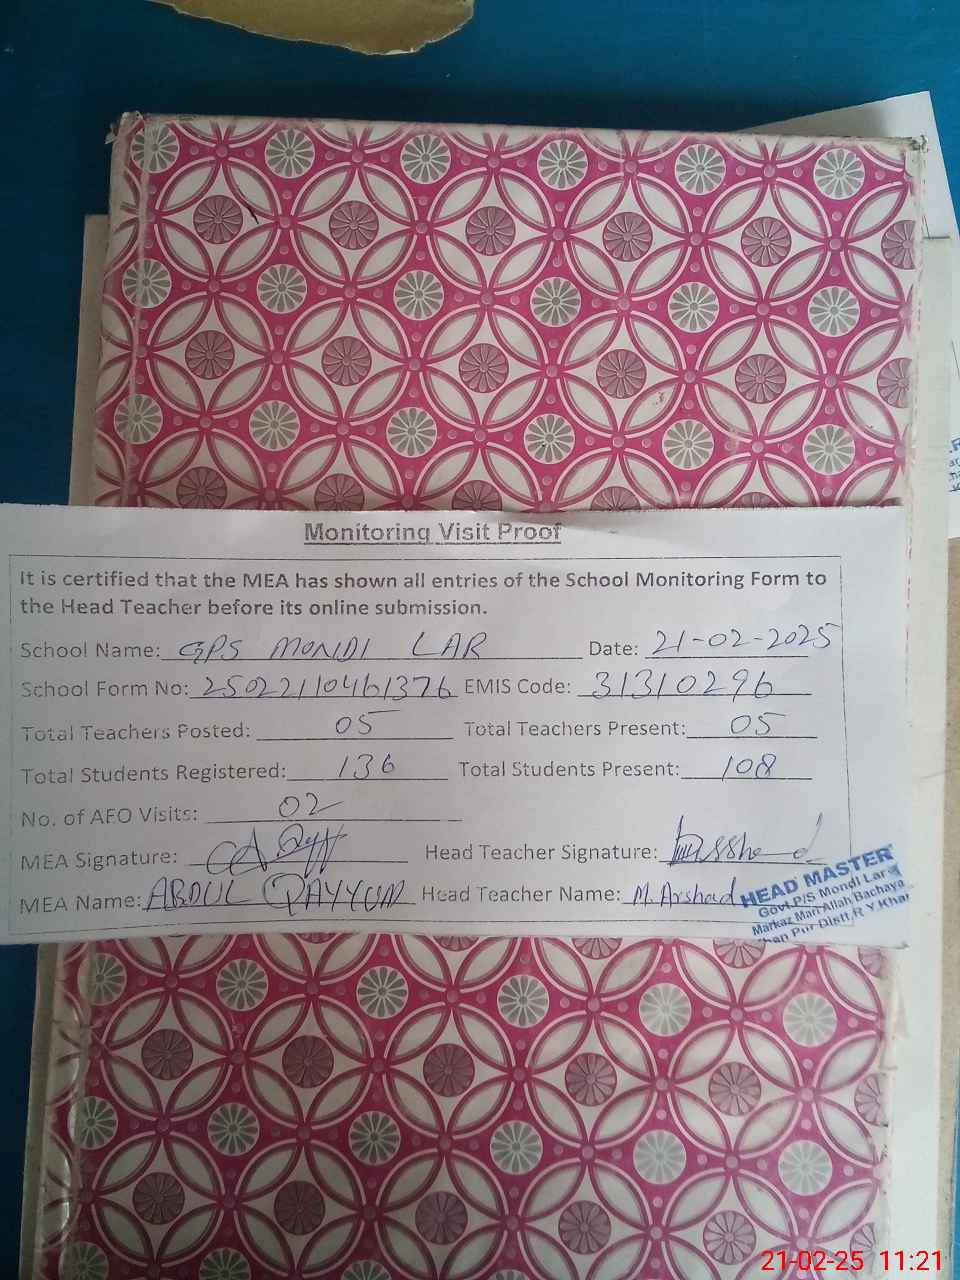 Monitoring Visit Proof
It is certified that the MEA has shown all entries of the School Monitoring Form to
the Head Teacher before its online submission.
School Name: GPS MONDI LAR Date: 21-02-2025
School Form No: 25022110461376 EMIS Code: 31310296
Total Teachers Posted: 05 Total Teachers Present: 05
Total Students Registered: 136 Total Students Present: 108
No. of AEO Visits: 02
MEA Signature: Head Teacher Signature:
MEA Name: ABDUL QAYYUM Head Teacher Name: M. Arshad
HEAD MASTER
Govt.P/S Mondi Lar
Markaz Mari Allah Bachaya
Khan Pur Distt.R.Y.Khan
21-02-25 11:21